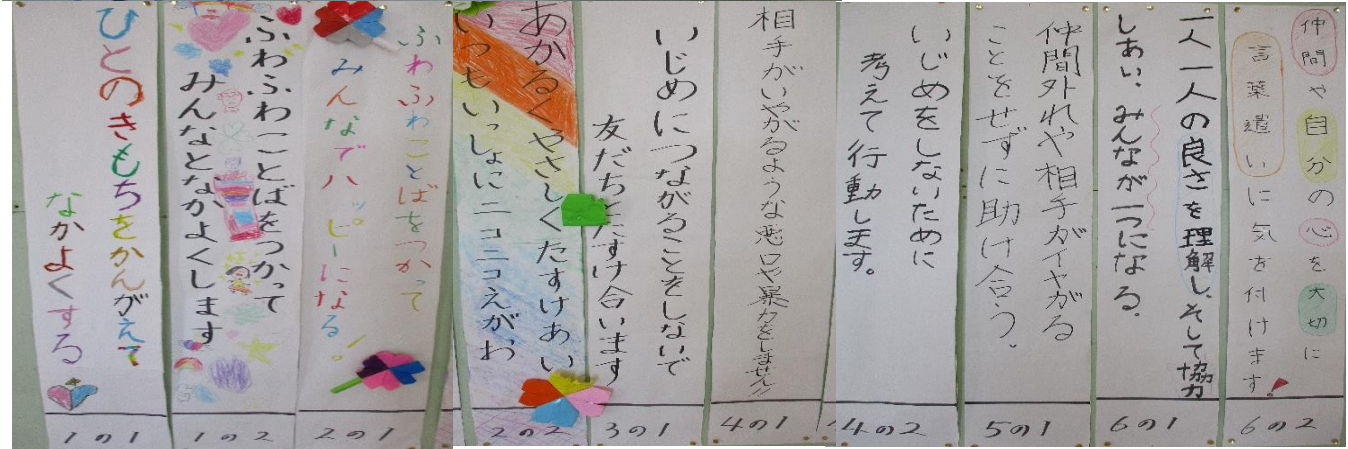 ひとのきもちをかんがえて
なかよくする
1の1
ふわふわことばをつかって
みんなとなかよくします
1の2
ふわふわことばをつかって
みんなでハッピーになる!。
2の1
あかるくやさしくたすけあい
いつもいっしょにニコニコえがお
2の2
いじめにつながることをしないで
友だちとたすけ合います
3の1
相手がいやがるような悪口や暴力をしません!!
4の1
いじめをしないために
考えて行動します。
4の2
仲間外れや相手がイヤがる
ことをせずに助け合う。
5の1
一人一人の良さを理解し、そして協力
しあい、みんなが一つになる。
6の1
仲間や自分の心を大切に
言葉遣いに気を付けます!
6の2